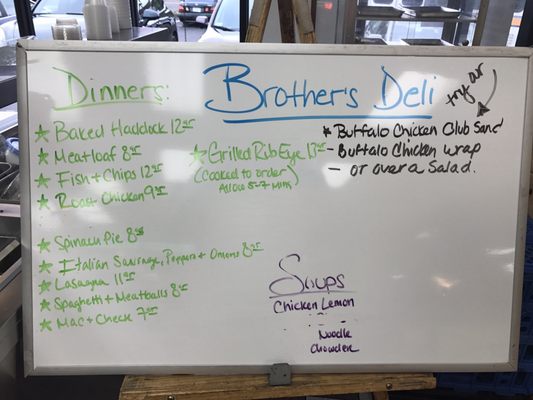 Dinners:
Brother's Deli
try our
★ Baked Haddock 12.95
★ Meatloaf 8.95
★ Fish + Chips 12.95
★ Roast Chicken 9.95
★ Grilled Rib Eye 13.95
(Cooked to order)
Allow 5-7 mins
* Buffalo Chicken Club Sand
- Buffalo Chicken wrap
- or over a Salad.
★ Spinach Pie 8.95
★ Italian Sausage, Peppers + Onions 8.95
★ Lasagna 11.95
★ Spaghetti + Meatballs 8.95
★ Mac + Cheese 7.95
Soups
Chicken Lemon
Noodle
Chowder